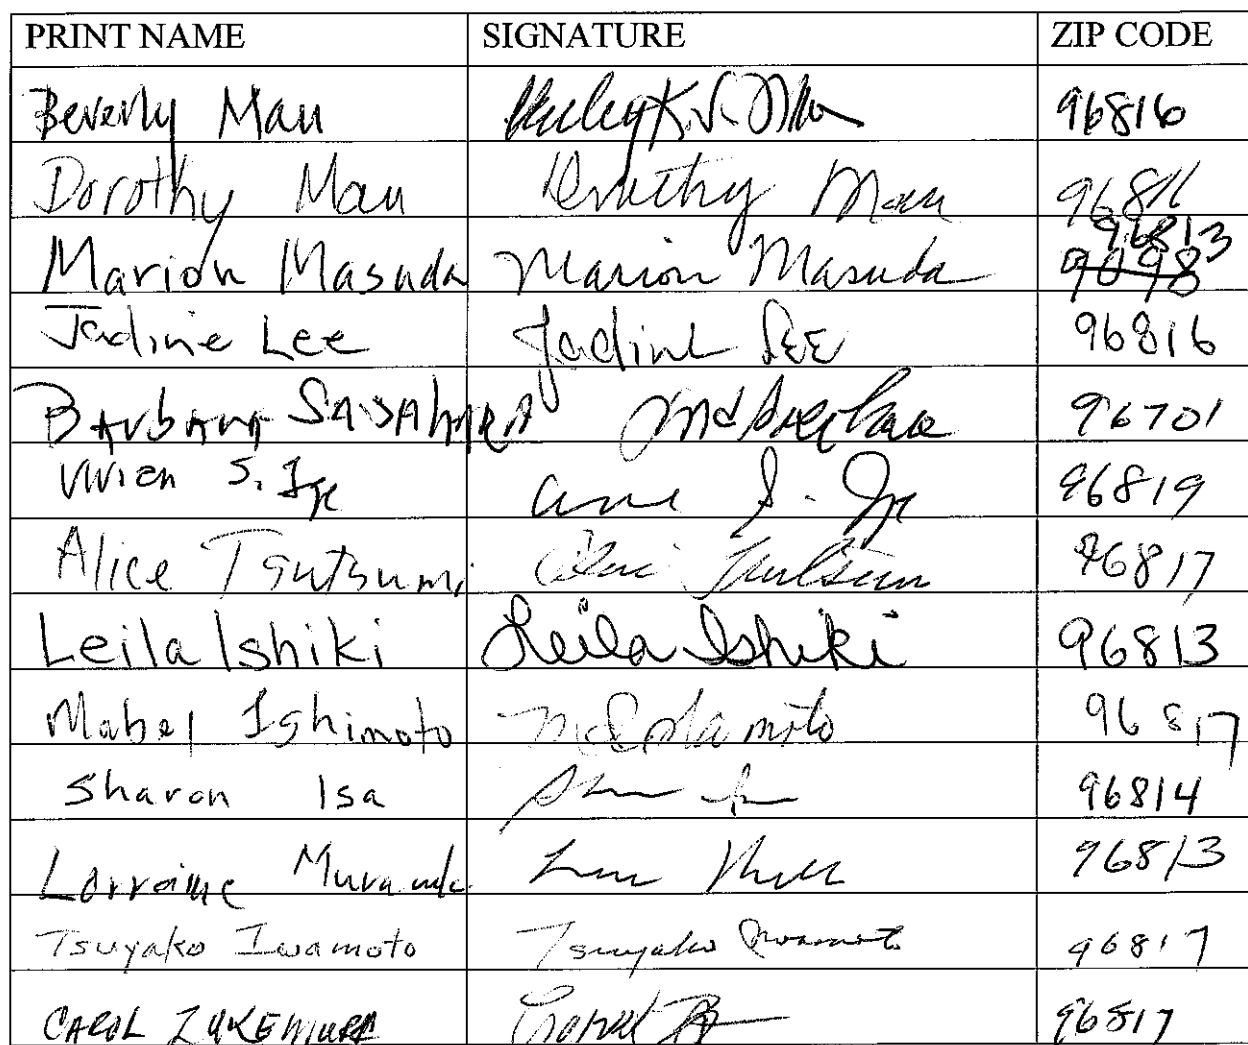 PRINT NAME SIGNATURE ZIP CODE
Beverly Mau 96816
Dorothy Mau Dorothy Mau 96816
96813
Marion Masuda Marion Masuda 9098
Jadine Lee Jadine Lee 96816
Barbara SASAHARA 96701
Vivien S. Ige S. Ige 96819
Alice Tsutsumi Alice Tsutsumi 96817
Leila Ishiki Leila Ishiki 96813
Mabel Ishimoto 96817
Sharon Isa 96814
Lorraine 96813
Tsuyako Iwamoto Tsuyako Iwamoto 96817
CAROL ZUKEMURA 96817